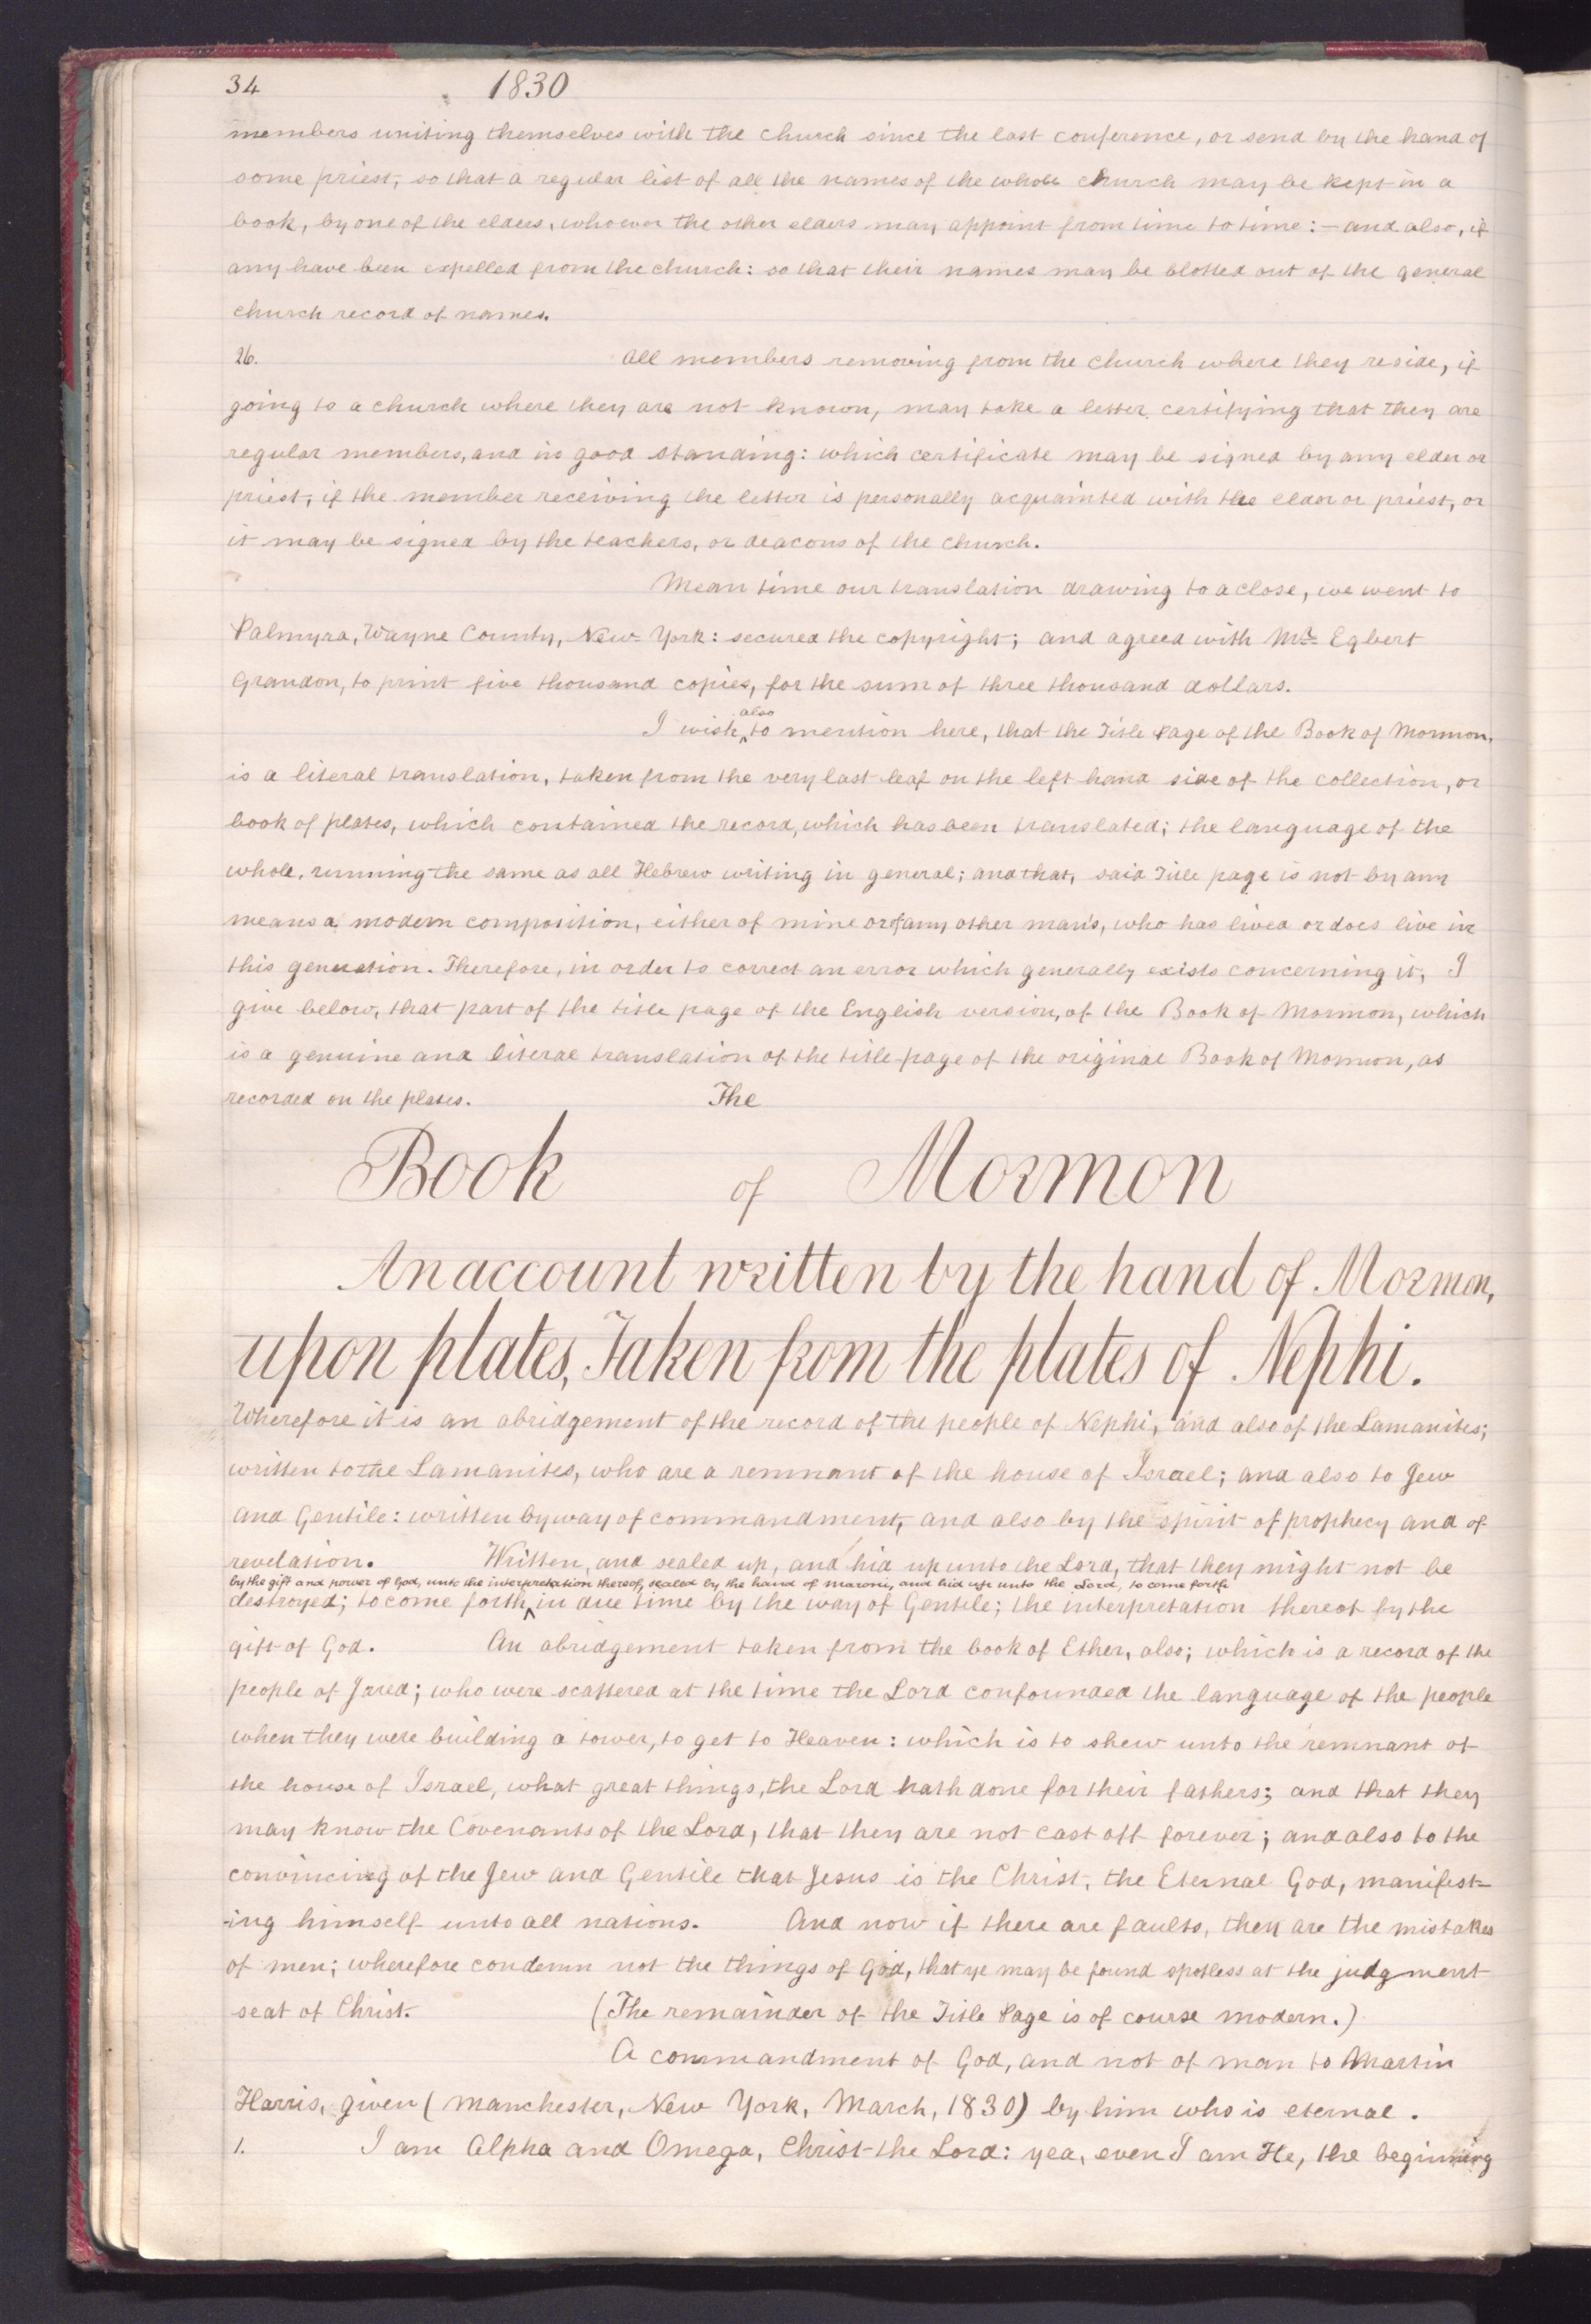 34 1830
members uniting themselves with the church since the last conference, or send by the hand of
some priest, so that a regular list of all the names of the whole church may be kept in a
book, by one of the elders, whoever the other elders may appoint from time to time: — and also, if
any have been expelled from the church: so that their names may be blotted out of the general
church record of names.
26. All members removing from the church where they reside, if
going to a church where they are not known, may take a letter certifying that they are
regular members, and in good standing: which certificate may be signed by any elder or
priest, if the member receiving the letter is personally acquainted with the elder or priest, or
it may be signed by the teachers, or deacons of the church.
Mean time our translation drawing to a close, we went to
Palmyra, Wayne County, New York: secured the copyright; and agreed with Mr. Egbert
Grandon, to print five thousand copies, for the sum of three thousand dollars.
also
I wish ^ to mention here, that the Title Page of the Book of Mormon,
is a literal translation, taken from the very last leaf on the left hand side of the collection, or
book of plates, which contained the record, which has been translated; the language of the
whole, running the same as all Hebrew writing in general; and that, said Title page is not by any
means a modern composition, either of mine or of any other man's, who has lived or does live in
this generation. Therefore, in order to correct an error which generally exists concerning it, I
give below, that part of the title page of the English version, of the Book of Mormon, which
is a genuine and literal translation of the title-page of the original Book of Mormon, as
recorded on the plates. The
Book of Mormon
An account written by the hand of Mormon,
upon plates, Taken from the plates of Nephi.
Wherefore it is an abridgement of the record of the people of Nephi, and also of the Lamanites;
written to the Lamanites, who are a remnant of the house of Israel; and also to Jew
and Gentile: written by way of commandment, and also by the spirit of prophecy and of
revelation. Written, and sealed up, and hid up unto the Lord, that they might not be
by the gift and power of God, unto the interpretation thereof, sealed by the hand of maroni, and hid up unto the Lord, to come forth
destroyed; to come forth ^ in due time by the way of Gentile; the interpretation thereof by the
gift of God. An abridgement taken from the book of Ether, also; which is a record of the
people of Jared; who were scattered at the time the Lord confounded the language of the people
when they were building a tower, to get to Heaven: which is to shew unto the remnant of
the house of Israel, what great things, the Lord hath done for their fathers; and that they
may know the Covenants of the Lord, that they are not cast off forever; and also to the
convincing of the Jew and Gentile that Jesus is the Christ, the Eternal God, manifest-
-ing himself unto all nations. And now if there are faults, they are the mistakes
of men; wherefore condemn not the things of God, that ye may be found spotless at the judgment
seat of Christ. (The remainder of the Title Page is of course modern.)
A commandment of God, and not of man to Martin
Harris, given (Manchester, New York, March, 1830) by him who is eternal.
1. I am Alpha and Omega, Christ the Lord: yea, even I am He, the beginning